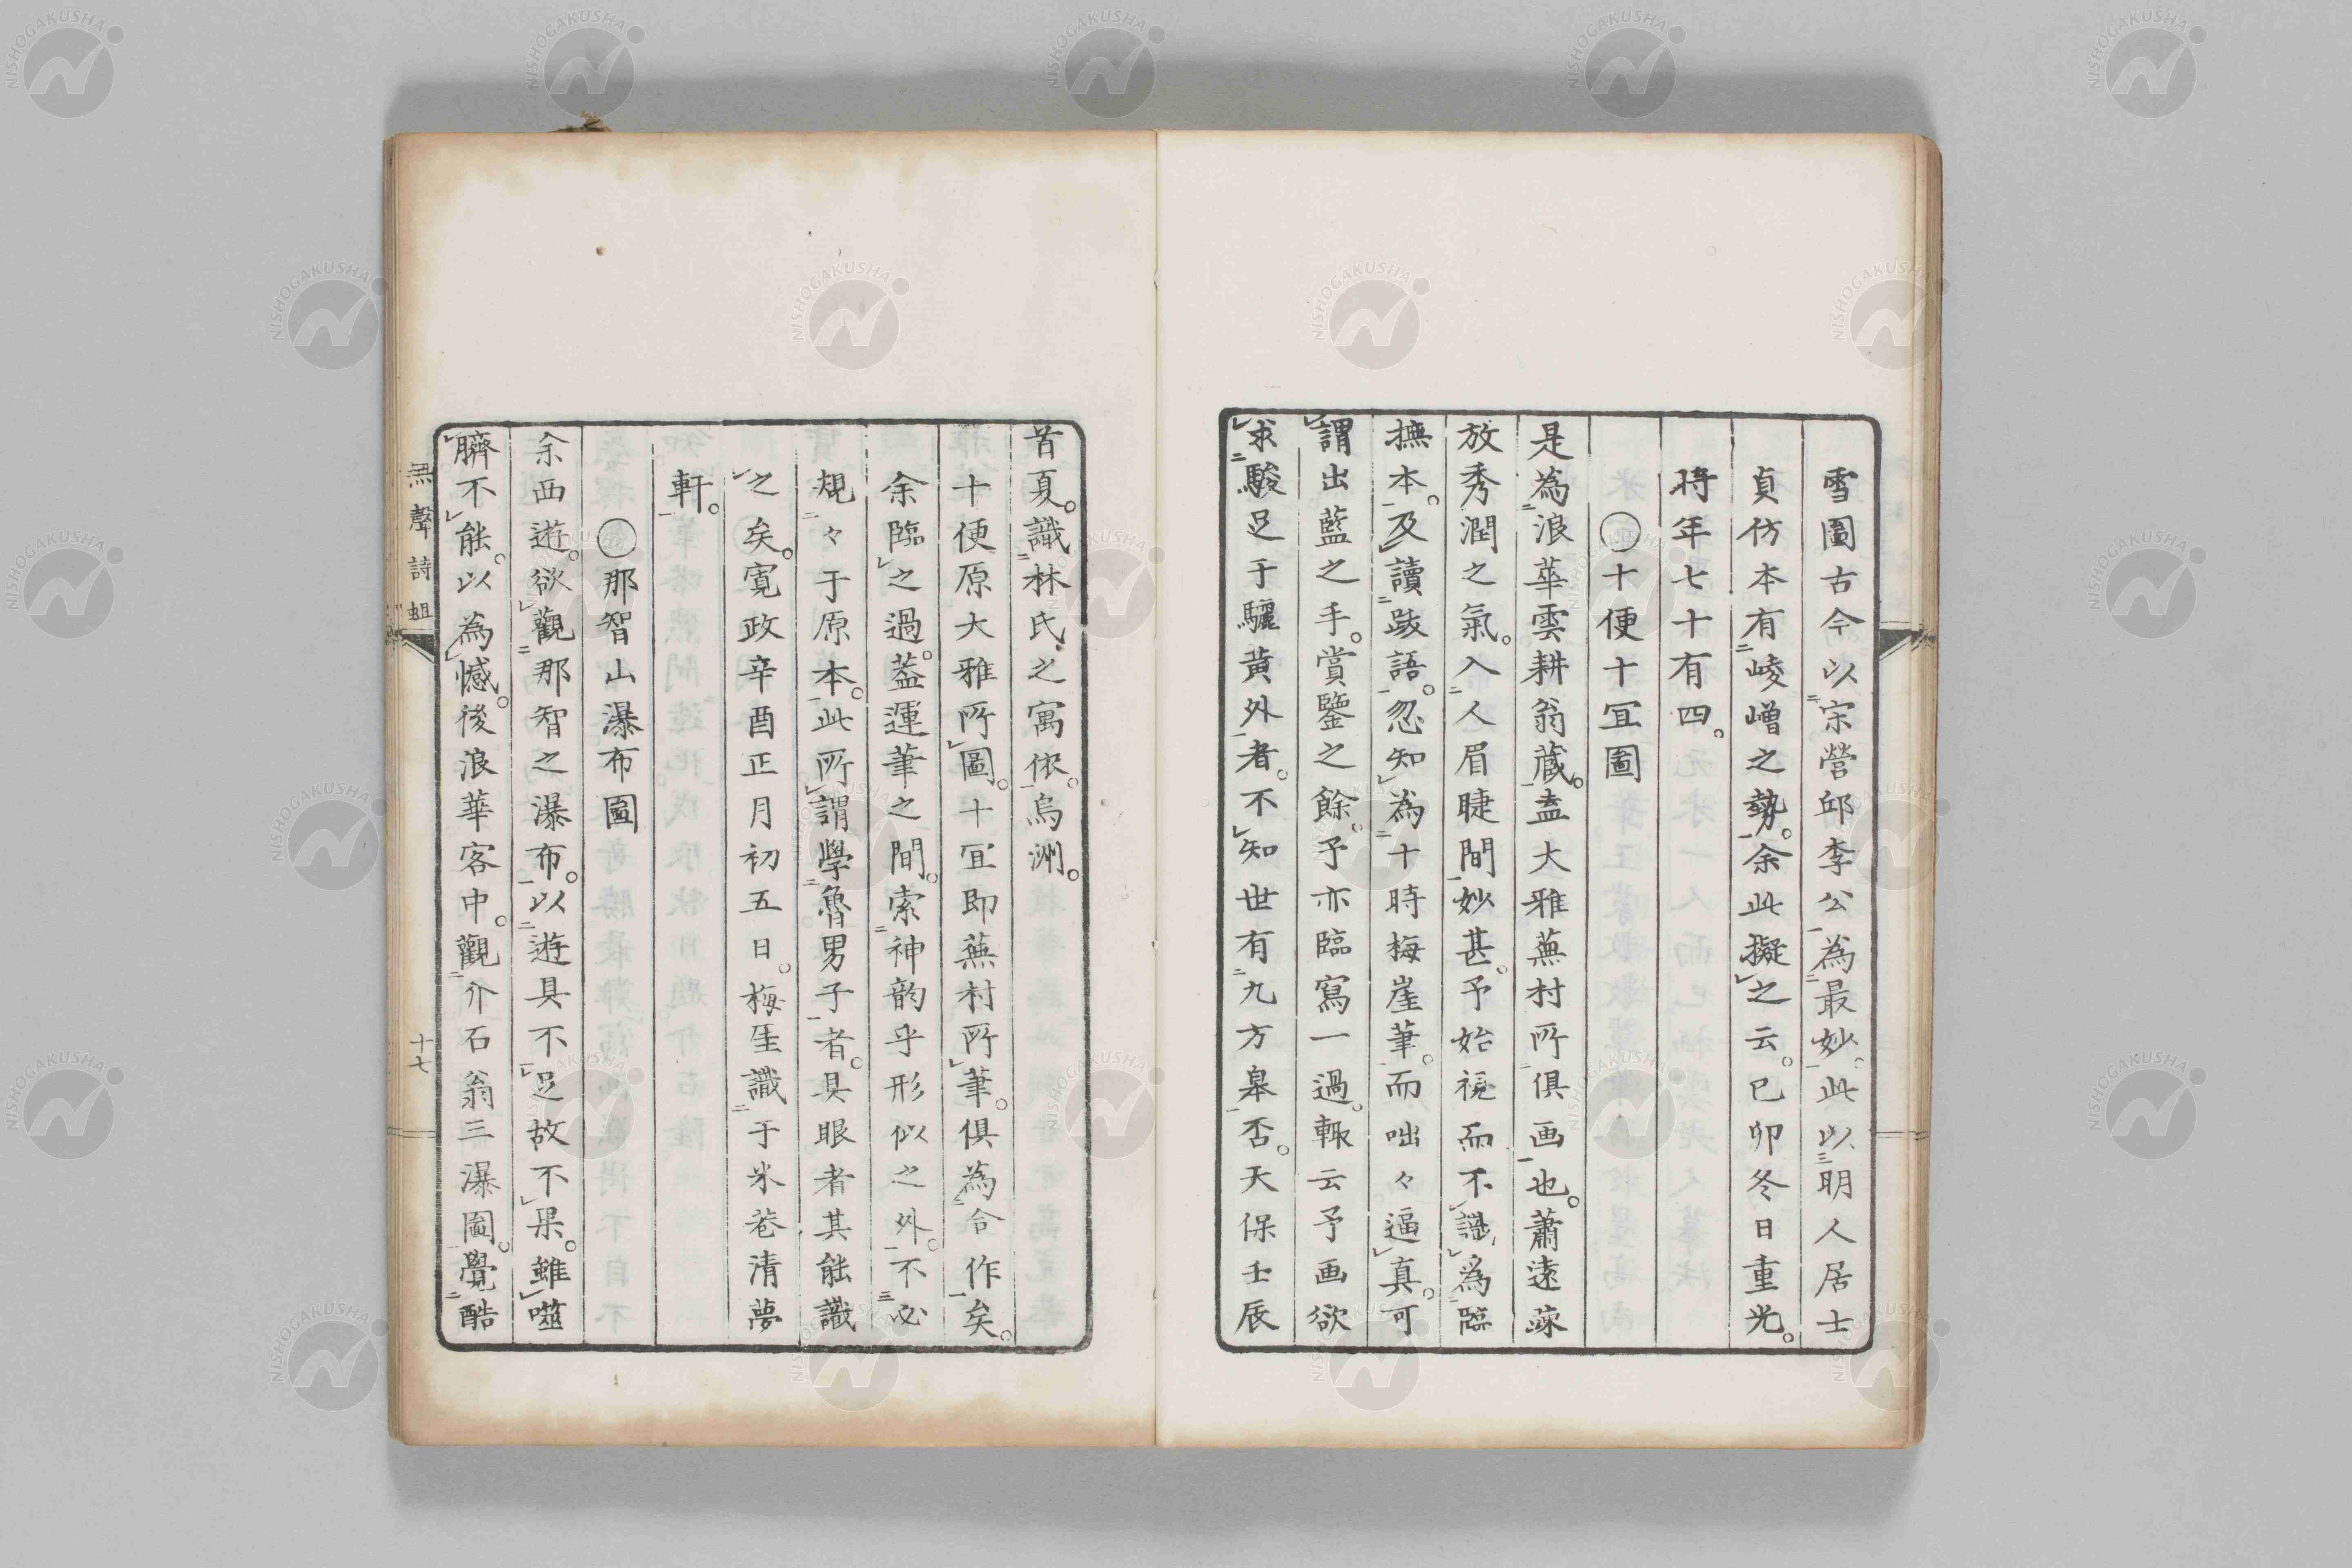 雪圖古今以宗營邱李公為最妙。此以明人居士
貞仿本有崚嶒之勢。余此擬之云。已卯冬日重光。
時年七十有四。
〇十便十冝圖
是為浪華雲耕翁蔵。盖大雅蕪村所俱画也。蕭遠疎
放秀潤之氣。入人眉睫間妙甚。予始視而不識為臨
撫本。及讀跋語。忽知為十時梅崖筆。而咄々逼真。可
謂出藍之手。賞鑒之餘。予亦臨寫一過。輙云予画欲
求駿足于驪黄外者。不知世有九方皋否。天保壬辰
首夏。識林氏之寓依。烏洲。
十便原大雅所圖。十冝即蕪村所筆。俱為合作矣。
余臨之過。葢運筆之間。索神韵乎形似之外。不必
規々于原本。此所謂學魯男子者。具眼者其能識
之矣。寛政辛酉正月初五日。梅厓識于米菴清夢
軒。
〇那智山瀑布圖
余西遊。欲觀那智之瀑布。以遊具不足故不果。雖噬
臍不能。以為憾。後浪華客中。觀介石翁三瀑圖。覺酷
無聲詩蛆
十七
NISHOGAKUSHA